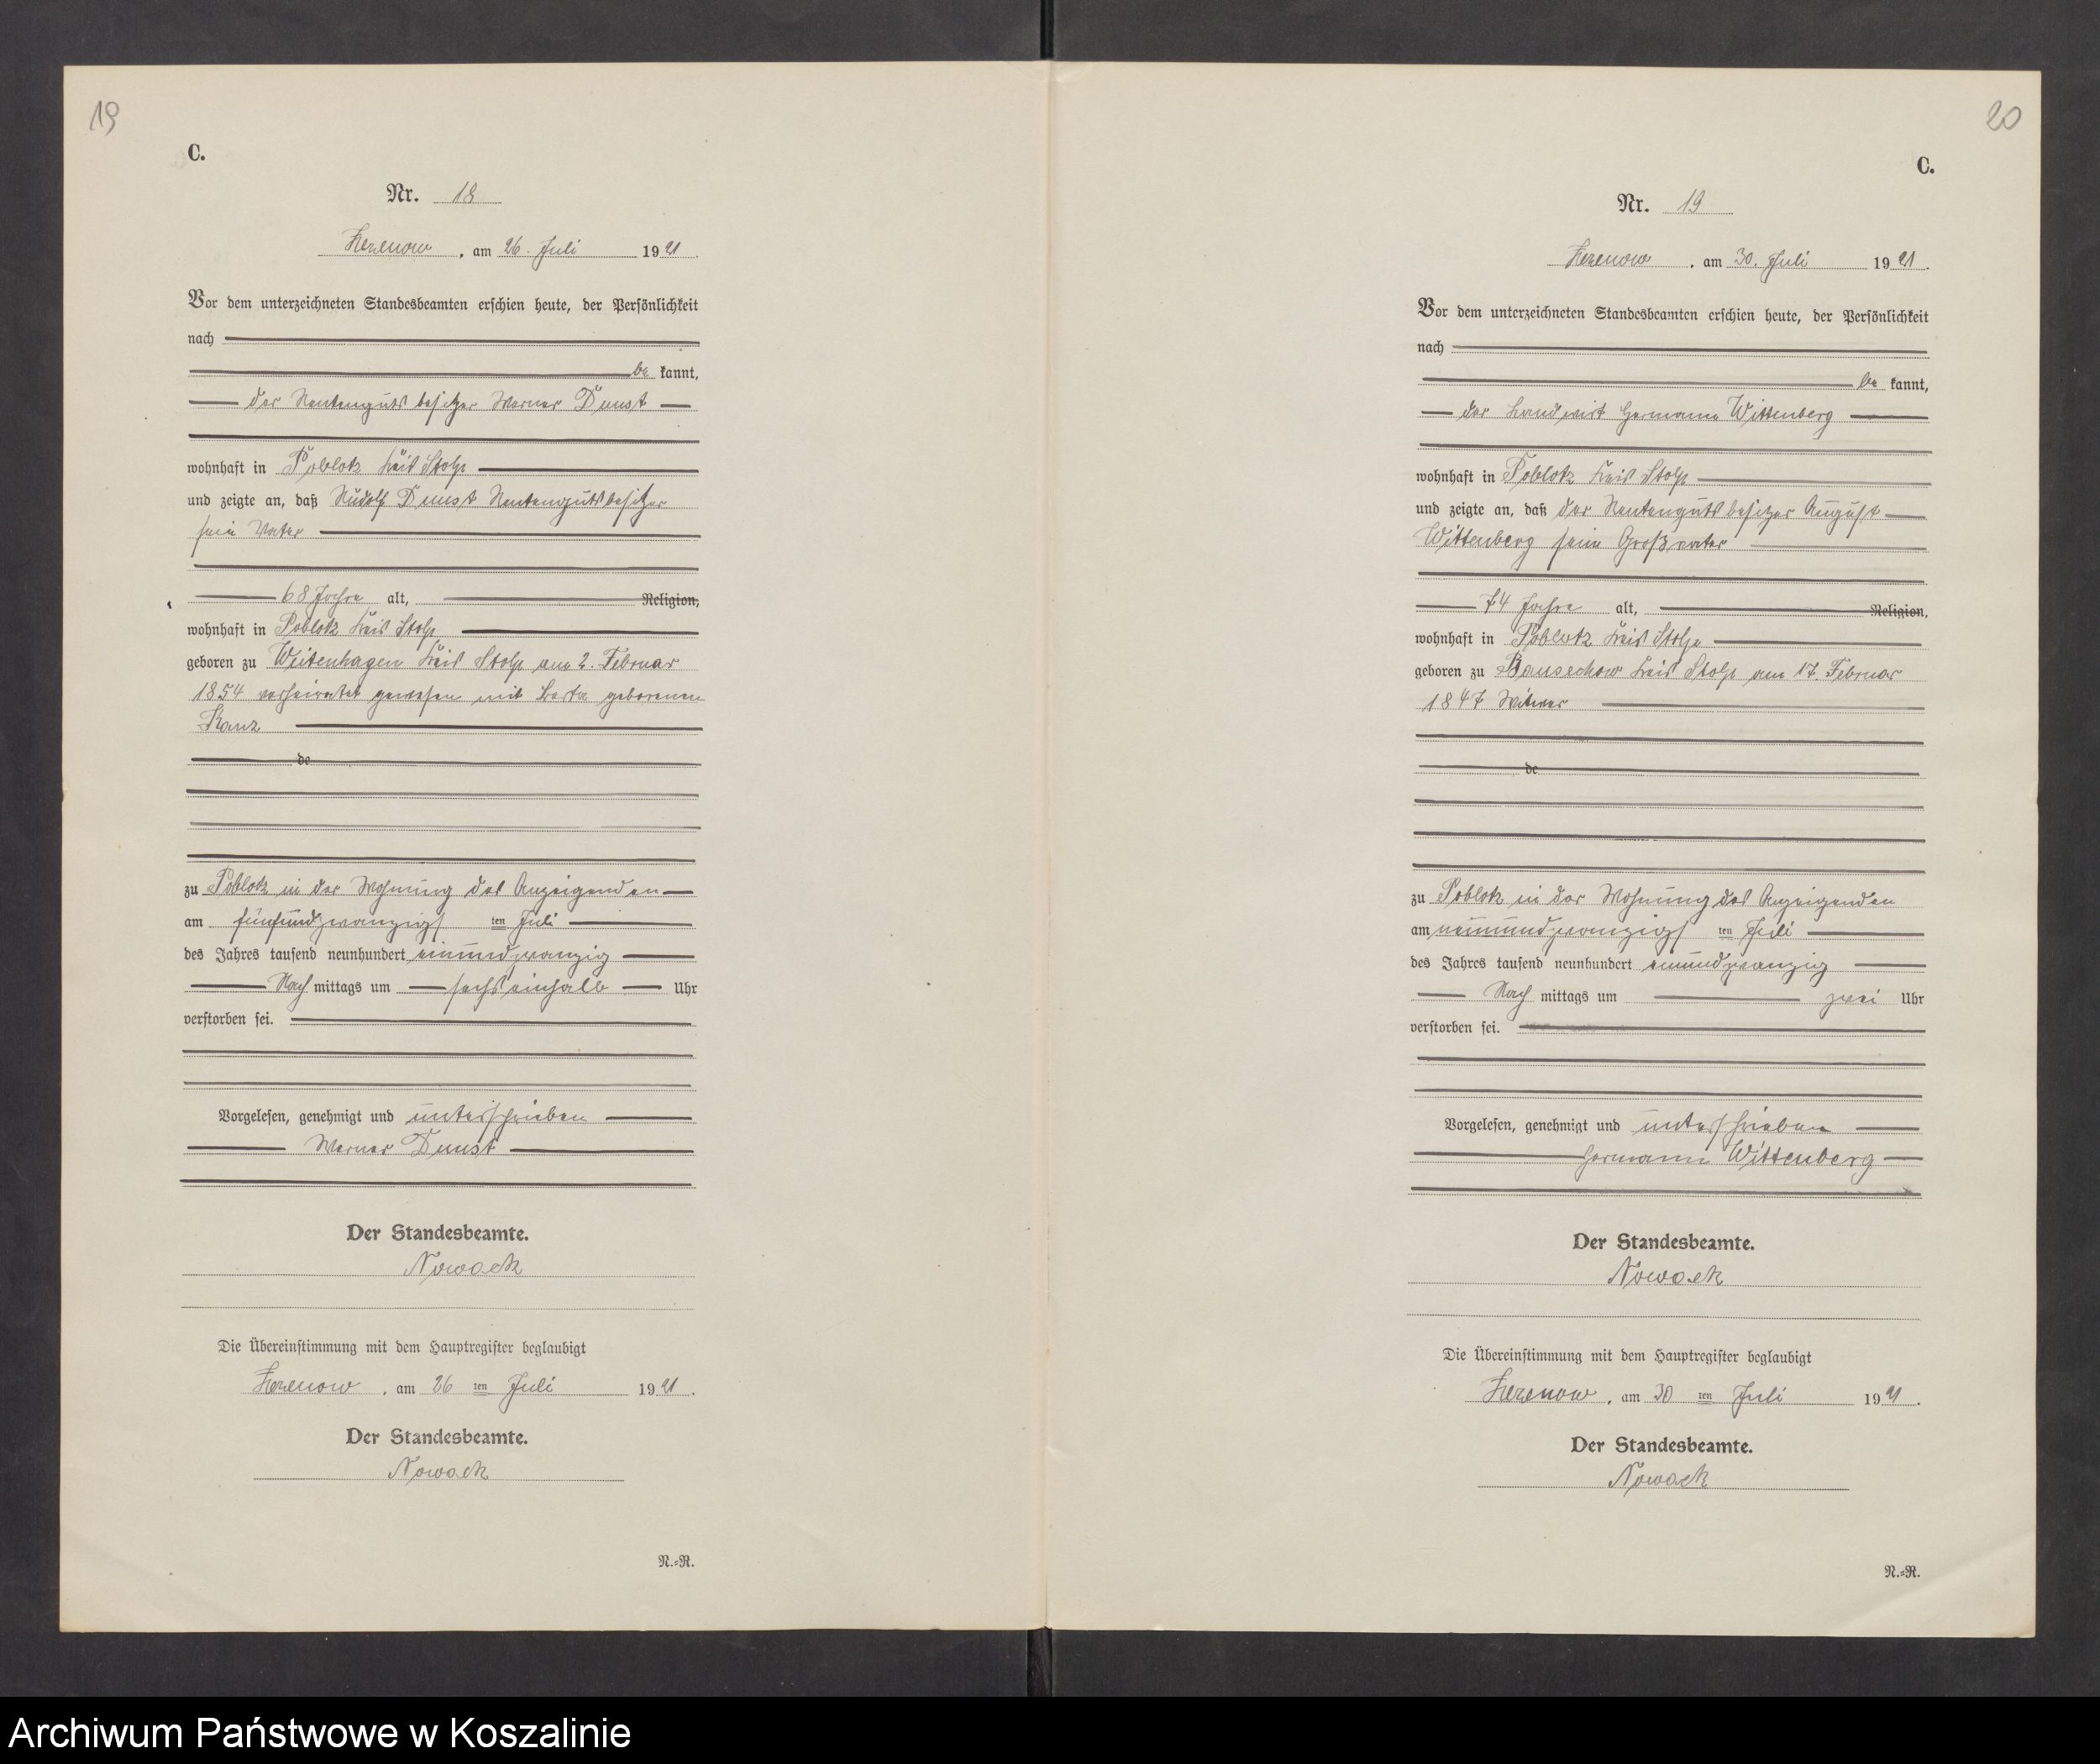 19
C.
Nr. 18
Zezenow, am 26. Juli 1921.
Vor dem unterzeichneten Standesbeamten erschien heute, der Persönlichkeit
nach
be kannt,
der Rentengutsbesitzer Werner Dunst
wohnhaft in Poblotz Kreis Stolp
und zeigte an, daß Rudolf Dunst Rentengutsbesitzer
sein Vater
68 Jahre alt, Religion,
wohnhaft in Poblotz Kreis Stolp
geboren zu Weitenhagen Kreis Stolp am 2. Februar
1854 verheiratet gewesen mit Berta geborenen
Kanz
de
zu Poblotz in der Wohnung des Anzeigenden
am fünfundzwanzigs ten Juli
des Jahres tausend neunhundert einundzwanzig
Nach mittags um sechseinhalb Uhr
verstorben sei.
Vorgelesen, genehmigt und unterschrieben
Werner Dunst
Der Standesbeamte.
Nowack
Die Übereinstimmung mit dem Hauptregister beglaubigt
Zezenow, am 26 ten Juli 1921.
Der Standesbeamte.
Nowack
N.=R.
20
C.
Nr. 19
Zezenow, am 30. Juli 1921.
Vor dem unterzeichneten Standesbeamten erschien heute, der Persönlichkeit
nach
be kannt,
der Landwirt Hermann Wittenberg
wohnhaft in Poblotz Kreis Stolp
und zeigte an, daß der Rentengutsbesitzer August
Wittenberg sein Großvater
74 Jahre alt, Religion,
wohnhaft in Poblotz Kreis Stolp
geboren zu Kreis Stolp am 17. Februar
1847 Witwer
de
zu Poblotz in der Wohnung des Anzeigenden
am neunundzwanzigs ten Juli
des Jahres tausend neunhundert einundzwanzig
Nach mittags um zwei Uhr
verstorben sei.
Vorgelesen, genehmigt und unterschrieben
Hermann Wittenberg
Der Standesbeamte.
Nowack
Die Übereinstimmung mit dem Hauptregister beglaubigt
Zezenow, am 30 ten Juli 1921.
Der Standesbeamte.
Nowack
N.=R.
Archiwum Państwowe w Koszalinie